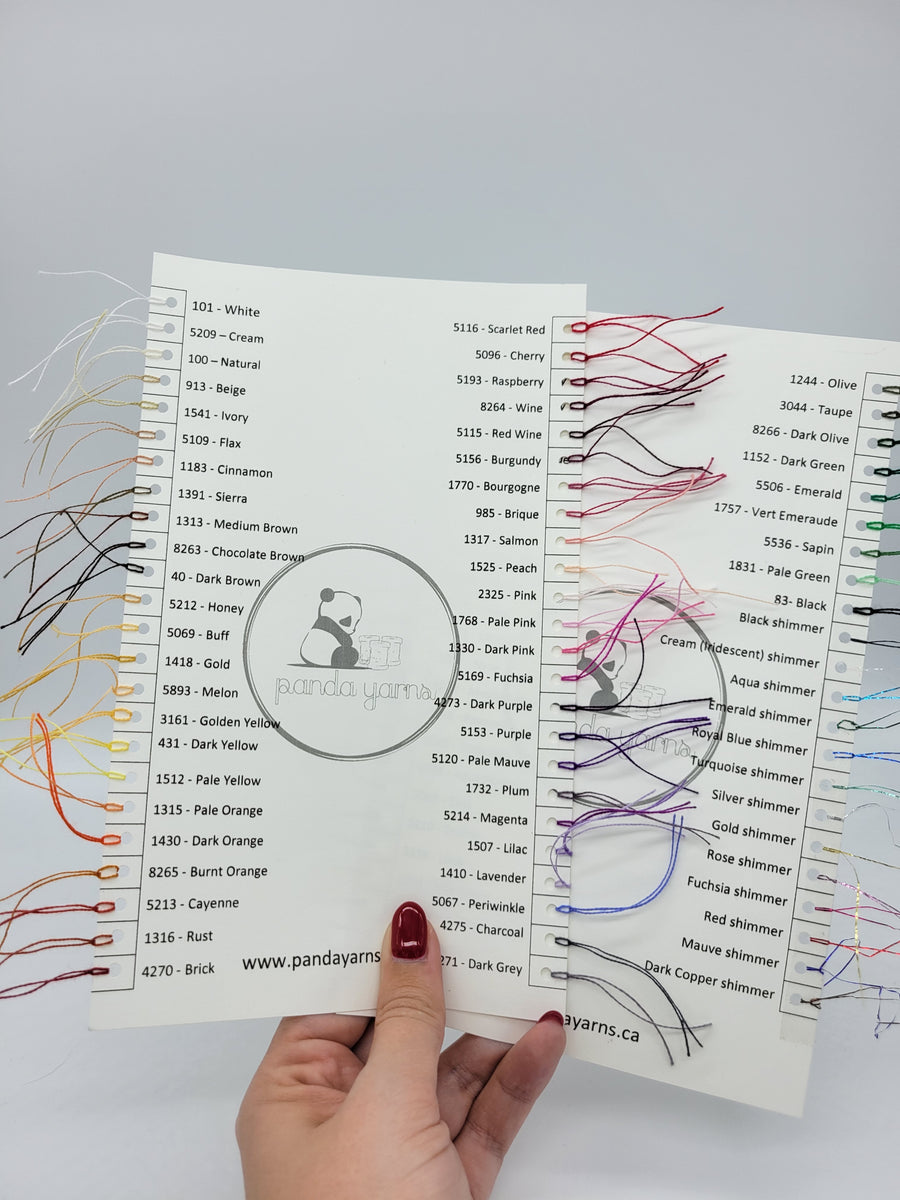 101 - White
5209 – Cream
100 – Natural
913 - Beige
1541 - Ivory
5109 - Flax
1183 - Cinnamon
1391 - Sierra
1313 - Medium Brown
8263 - Chocolate Brown
40 - Dark Brown
5212 - Honey
5069 - Buff
1418 - Gold
5893 - Melon
3161 - Golden Yellow
431 - Dark Yellow
1512 - Pale Yellow
1315 - Pale Orange
1430 - Dark Orange
8265 - Burnt Orange
5213 - Cayenne
1316 - Rust
4270 - Brick
panda yarns
www.pandayarns
5116 - Scarlet Red
5096 - Cherry
5193 - Raspberry
8264 - Wine
5115 - Red Wine
5156 - Burgundy
1770 - Bourgogne
985 - Brique
1317 - Salmon
1525 - Peach
2325 - Pink
1768 - Pale Pink
1330 - Dark Pink
5169 - Fuchsia
4273 - Dark Purple
5153 - Purple
5120 - Pale Mauve
1732 - Plum
5214 - Magenta
1507 - Lilac
1410 - Lavender
5067 - Periwinkle
4275 - Charcoal
271 - Dark Grey
1244 - Olive
3044 - Taupe
8266 - Dark Olive
1152 - Dark Green
5506 - Emerald
1757 - Vert Emeraude
5536 - Sapin
1831 - Pale Green
83- Black
Black shimmer
Cream (Iridescent) shimmer
Aqua shimmer
Emerald shimmer
Royal Blue shimmer
Turquoise shimmer
Silver shimmer
Gold shimmer
Rose shimmer
Fuchsia shimmer
Red shimmer
Mauve shimmer
Dark Copper shimmer
da yarns
ayarns.ca